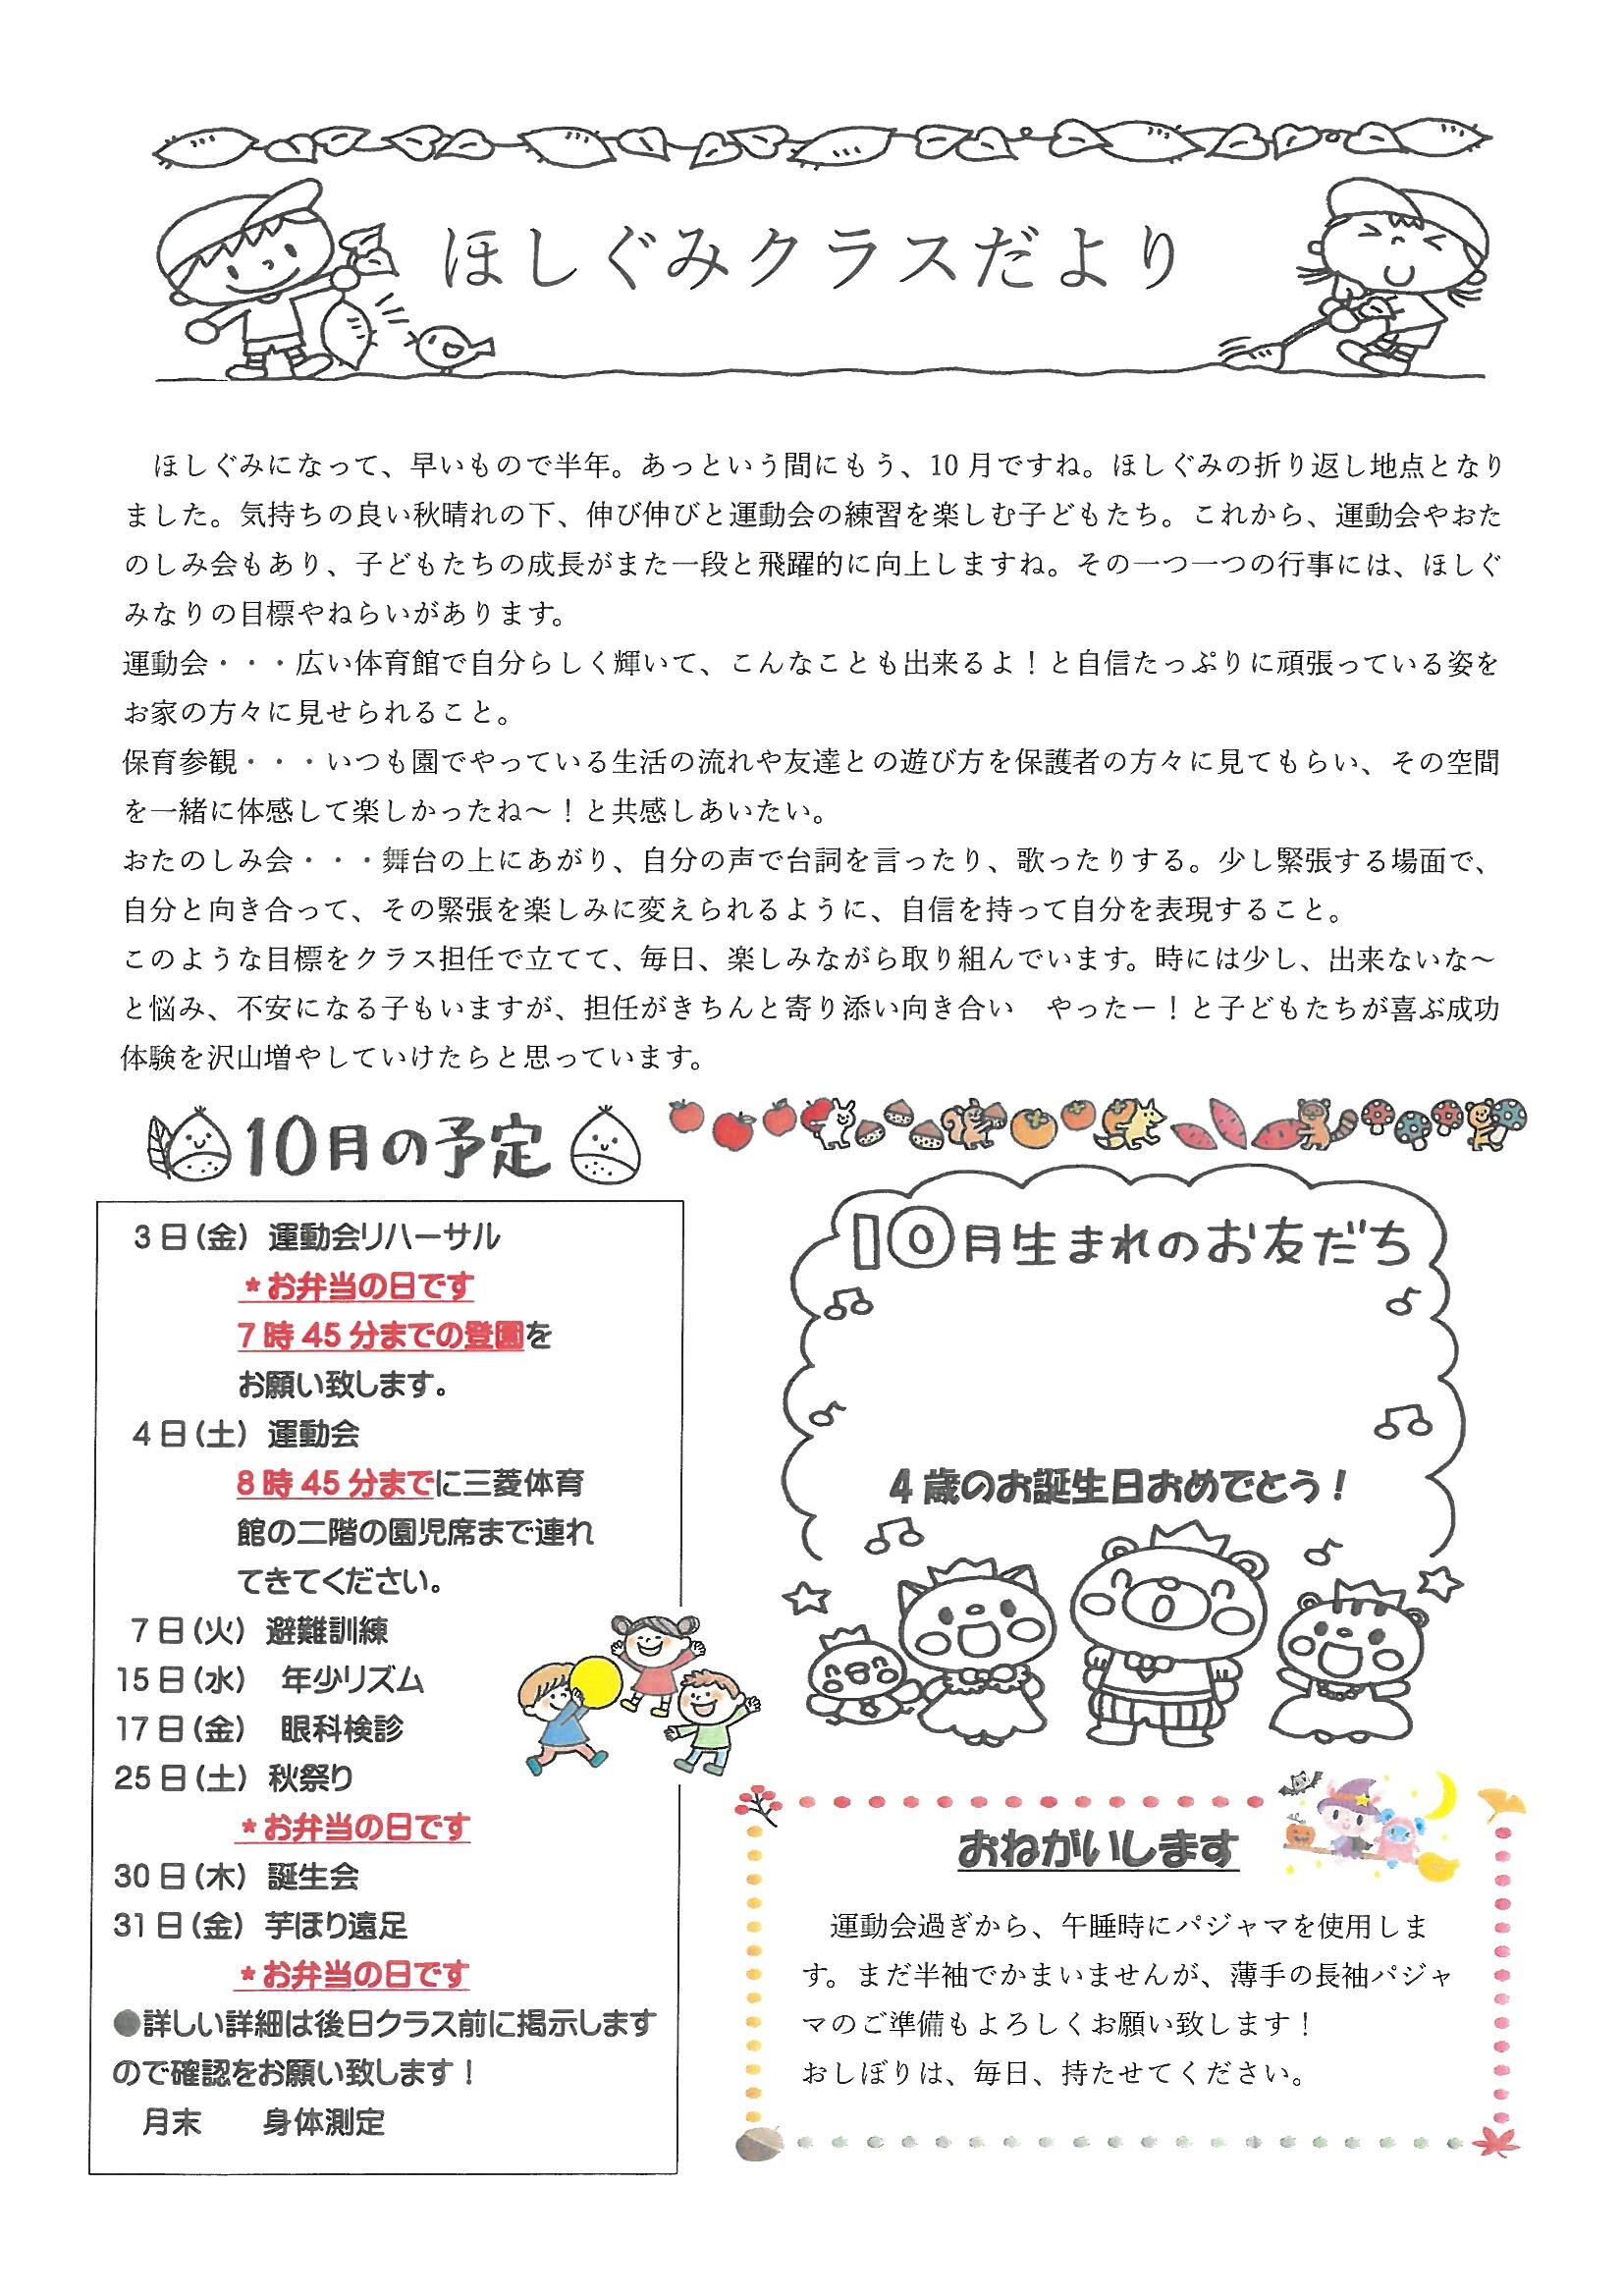 ほしぐみクラスだより
ほしぐみになって、早いもので半年。あっという間にもう、10 月ですね。ほしぐみの折り返し地点となり
ました。気持ちの良い秋晴れの下、伸び伸びと運動会の練習を楽しむ子どもたち。これから、運動会やおた
のしみ会もあり、子どもたちの成長がまた一段と飛躍的に向上しますね。その一つ一つの行事には、ほしぐ
みなりの目標やねらいがあります。
運動会・・・広い体育館で自分らしく輝いて、こんなことも出来るよ！と自信たっぷりに頑張っている姿を
お家の方々に見せられること。
保育参観・・・いつも園でやっている生活の流れや友達との遊び方を保護者の方々に見てもらい、その空間
を一緒に体感して楽しかったね～！と共感しあいたい。
おたのしみ会・・・舞台の上にあがり、自分の声で台詞を言ったり、歌ったりする。少し緊張する場面で、
自分と向き合って、その緊張を楽しみに変えられるように、自信を持って自分を表現すること。
このような目標をクラス担任で立てて、毎日、楽しみながら取り組んでいます。時には少し、出来ないな～
と悩み、不安になる子もいますが、担任がきちんと寄り添い向き合い　やったー！と子どもたちが喜ぶ成功
体験を沢山増やしていけたらと思っています。
10月の予定
3 日（金） 運動会リハーサル
＊お弁当の日です
7 時 45 分までの登園を
お願い致します。
4 日（土） 運動会
8 時 45 分までに三菱体育
館の二階の園児席まで連れ
てきてください。
7 日（火） 避難訓練
15 日（水）　年少リズム
17 日（金）　眼科検診
25 日（土） 秋祭り
＊お弁当の日です
30 日（木） 誕生会
31 日（金） 芋ほり遠足
＊お弁当の日です
●詳しい詳細は後日クラス前に掲示します
ので確認をお願い致します！
月末　　身体測定
10月生まれのお友だち
4 歳のお誕生日おめでとう！
おねがいします
運動会過ぎから、午睡時にパジャマを使用しま
す。まだ半袖でかまいませんが、薄手の長袖パジャ
マのご準備もよろしくお願い致します！
おしぼりは、毎日、持たせてください。